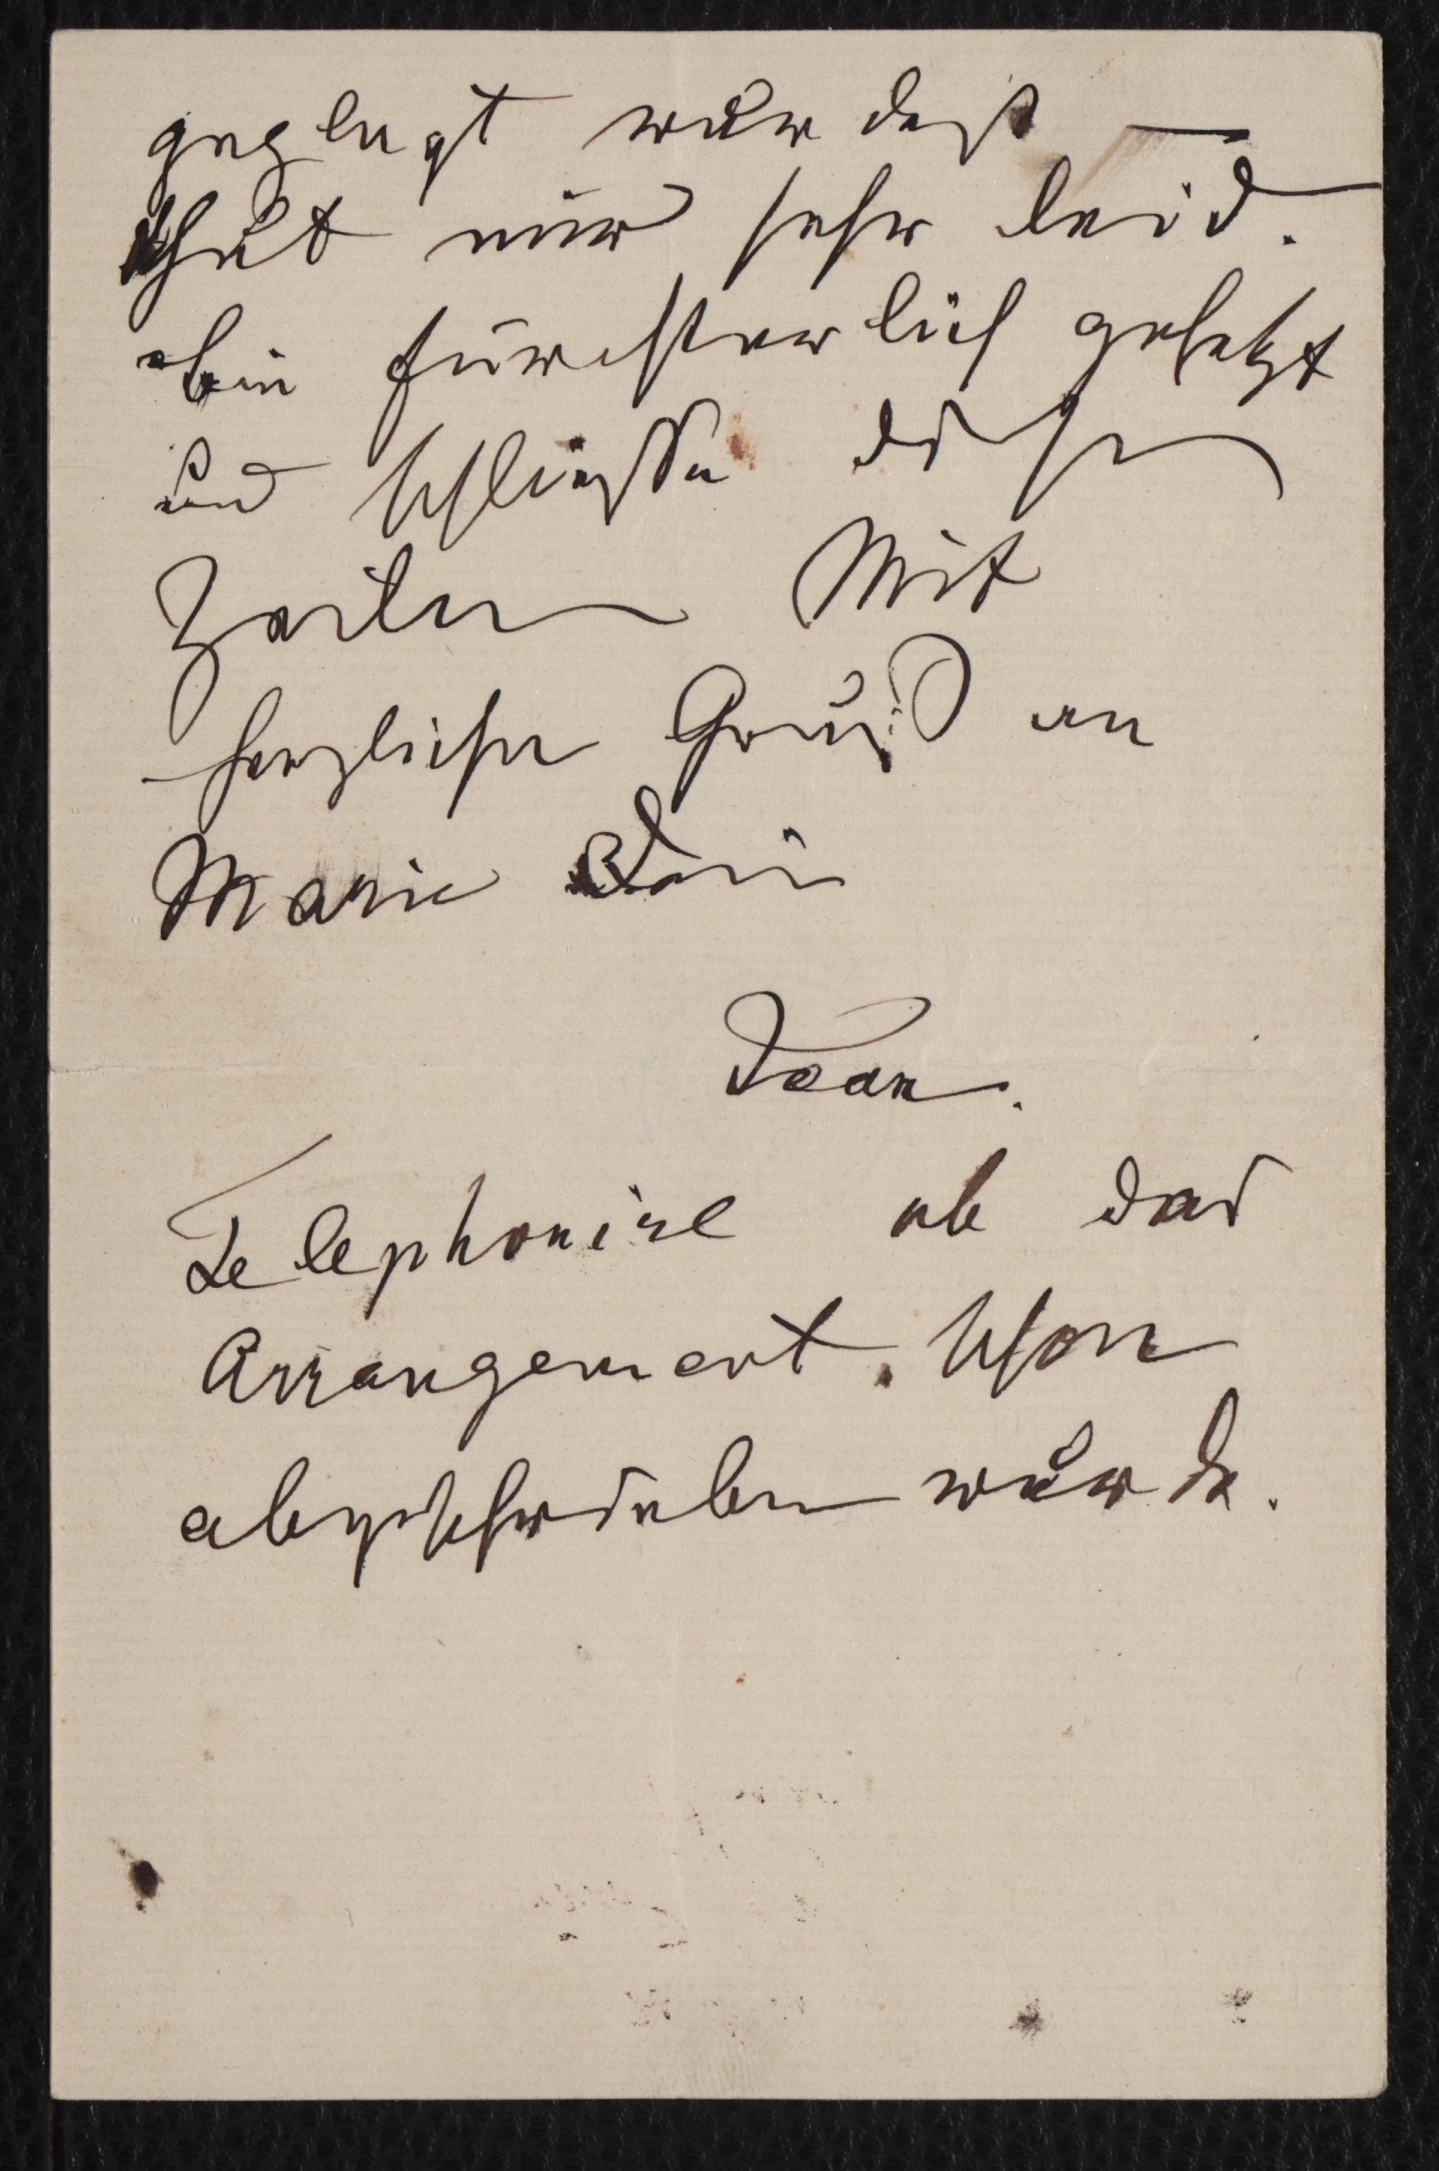 geplagt wurdest —
thut mir sehr leid.
bin fürchterlich gehetzt
und schließe diese
Zeilen Mit
herzlichen Gruß an
Marie Dein
Jean.
Telephonire ob das
Arrangement schon
abgeschrieben wurde.